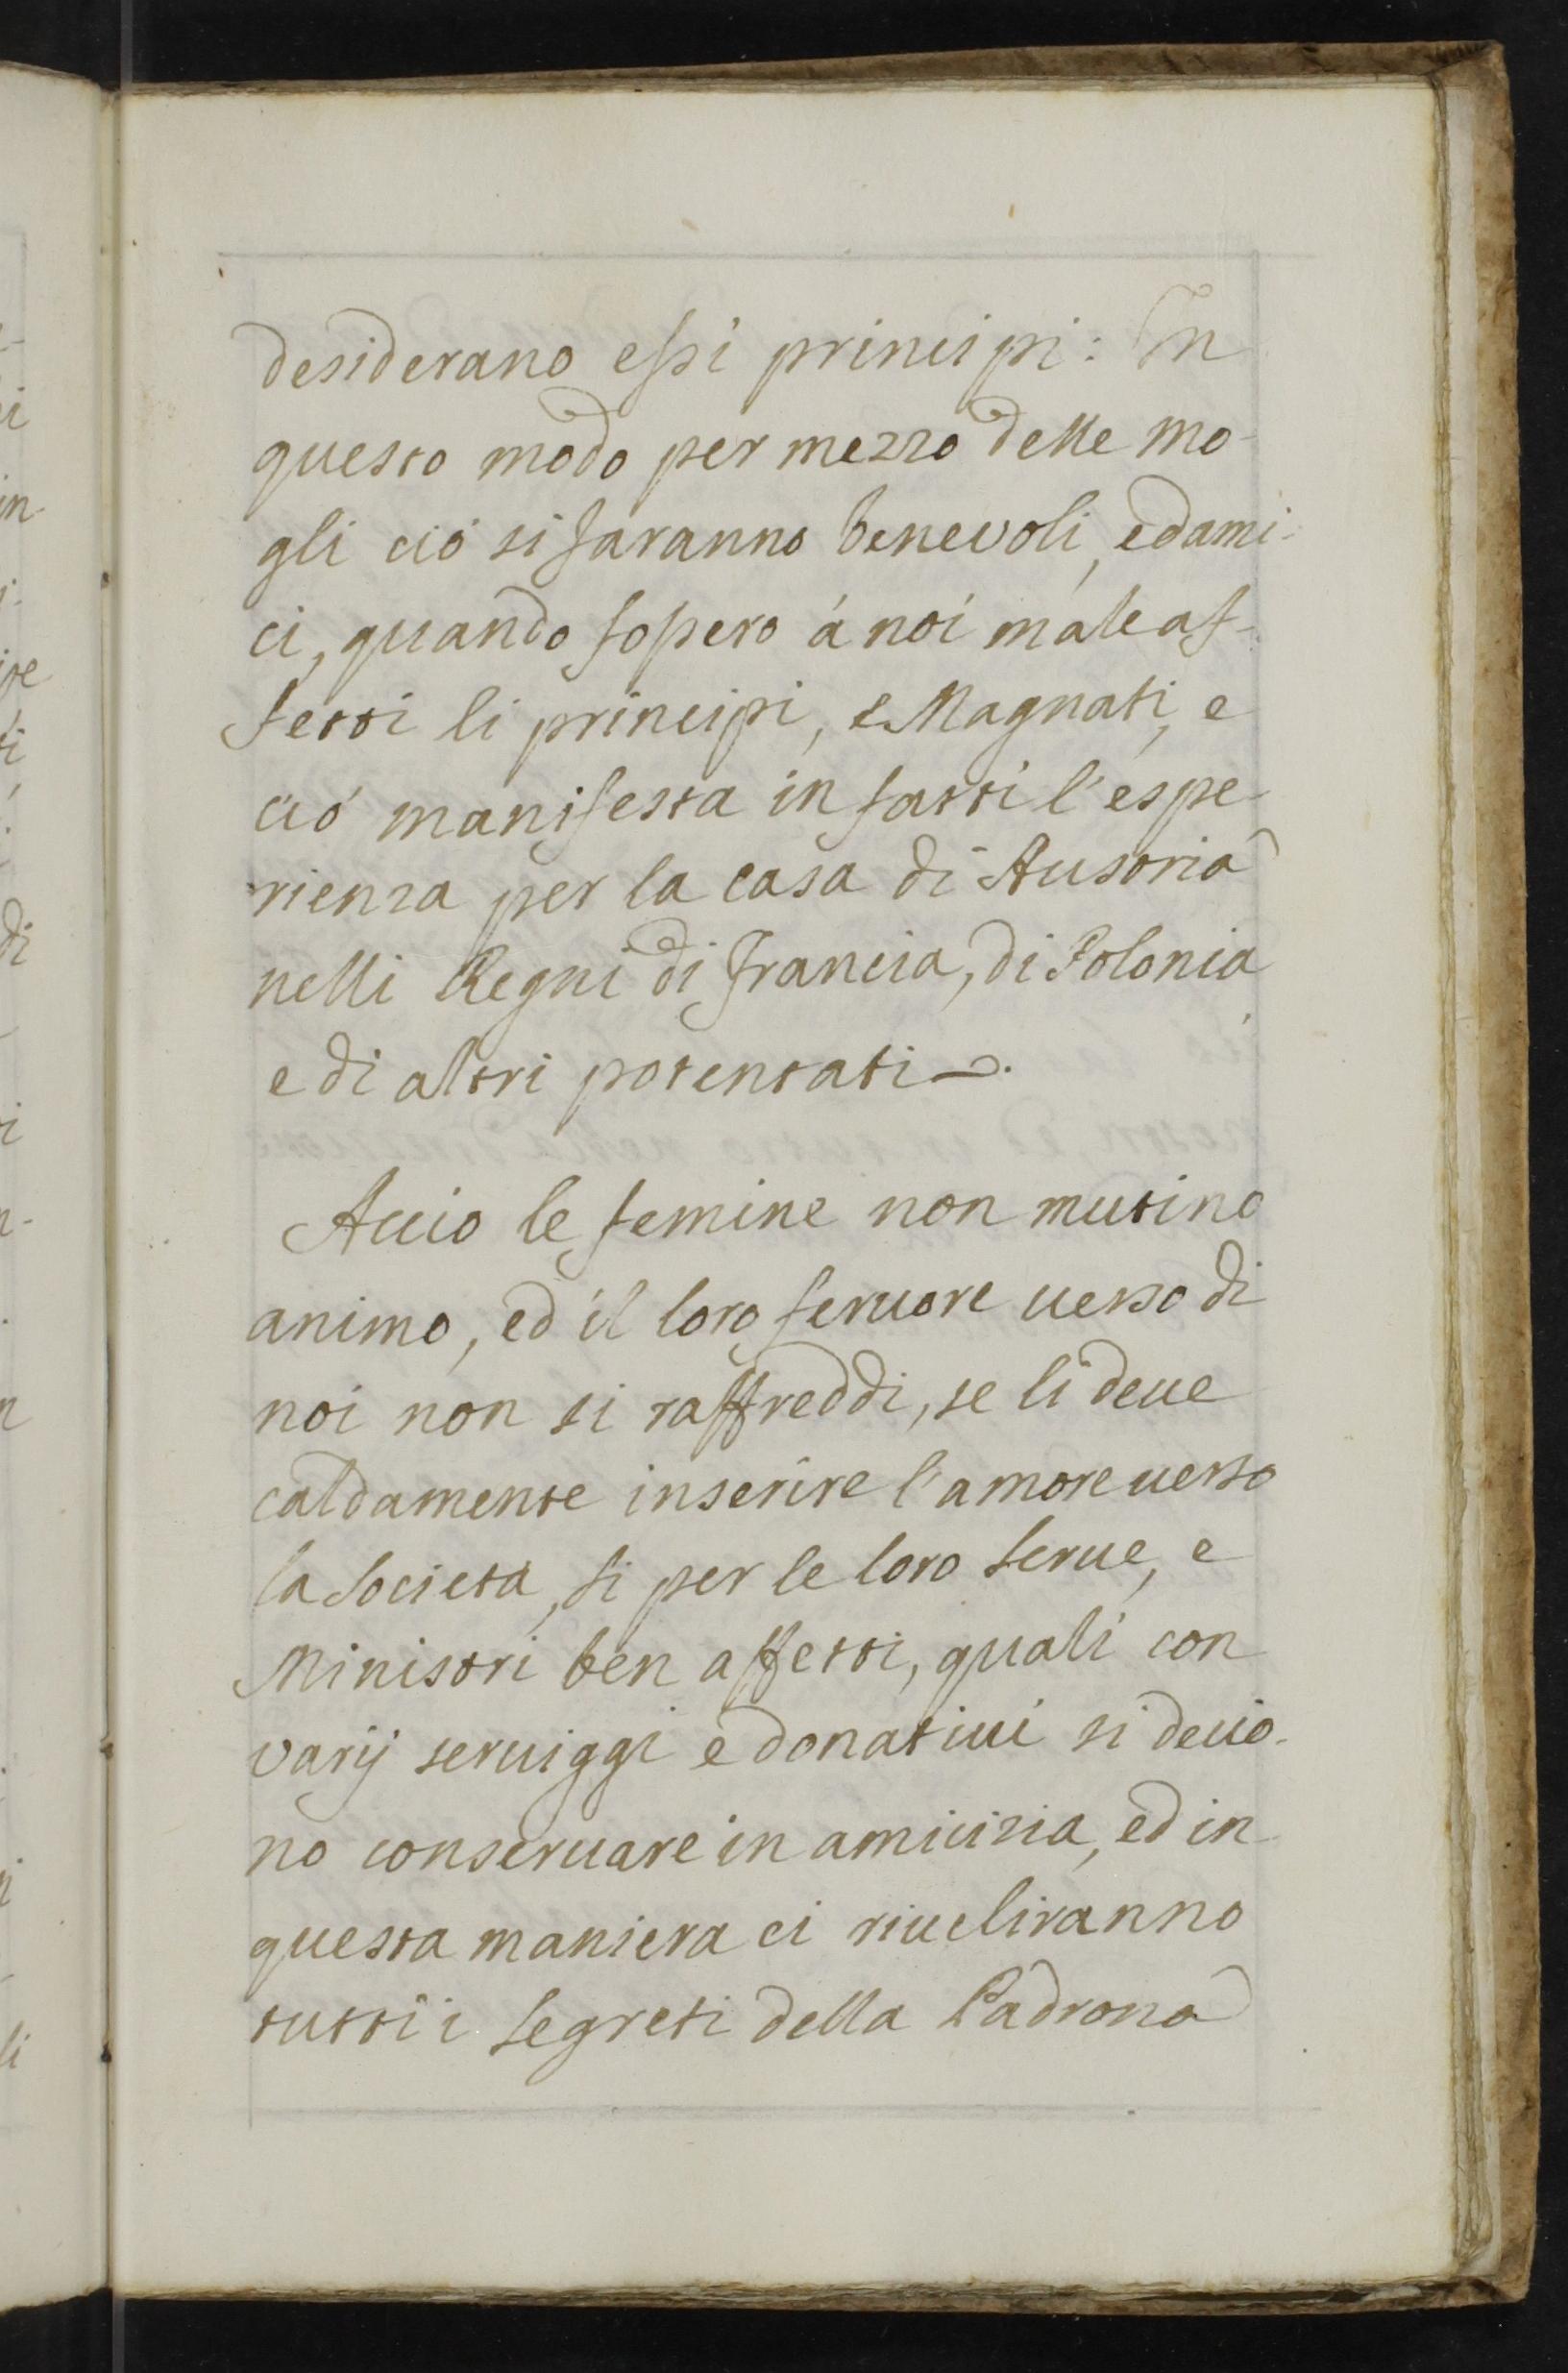 desiderano essi principi: In
questo modo per mezzo delle mo-
gli ció si faranno benevoli, ed ami-
ci, quando fossero á noi male af-
fetti li principi, e Magnati, e
ció manifesta in fatti l'espe-
rienza per la casa di Austria
nelli Regni di Francia, di Polonia
e di altri potentati.
Accio le femine non mutino
animo, ed il loro feruore uerso di
noi non si raffreddi, se li deue
caldamente inserire l'amore uerso
la Societá, si per le loro serue, e
Ministri ben affetti, quali con
varij seruiggi e donatiui si deuo-
no conseruare in amicizia, ed in
questa maniera ci riueliranno
tutti i segreti della Padrona